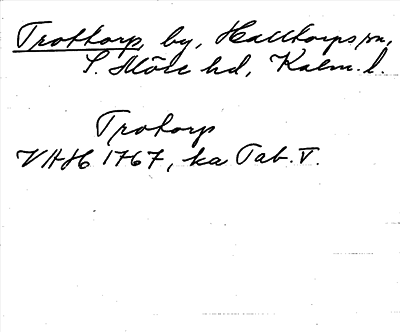 Trottorp, by, Halltorps sn,
S. Möre hd, Kalm. l.
Trotorp
VHH 1767, ka Tab. V.